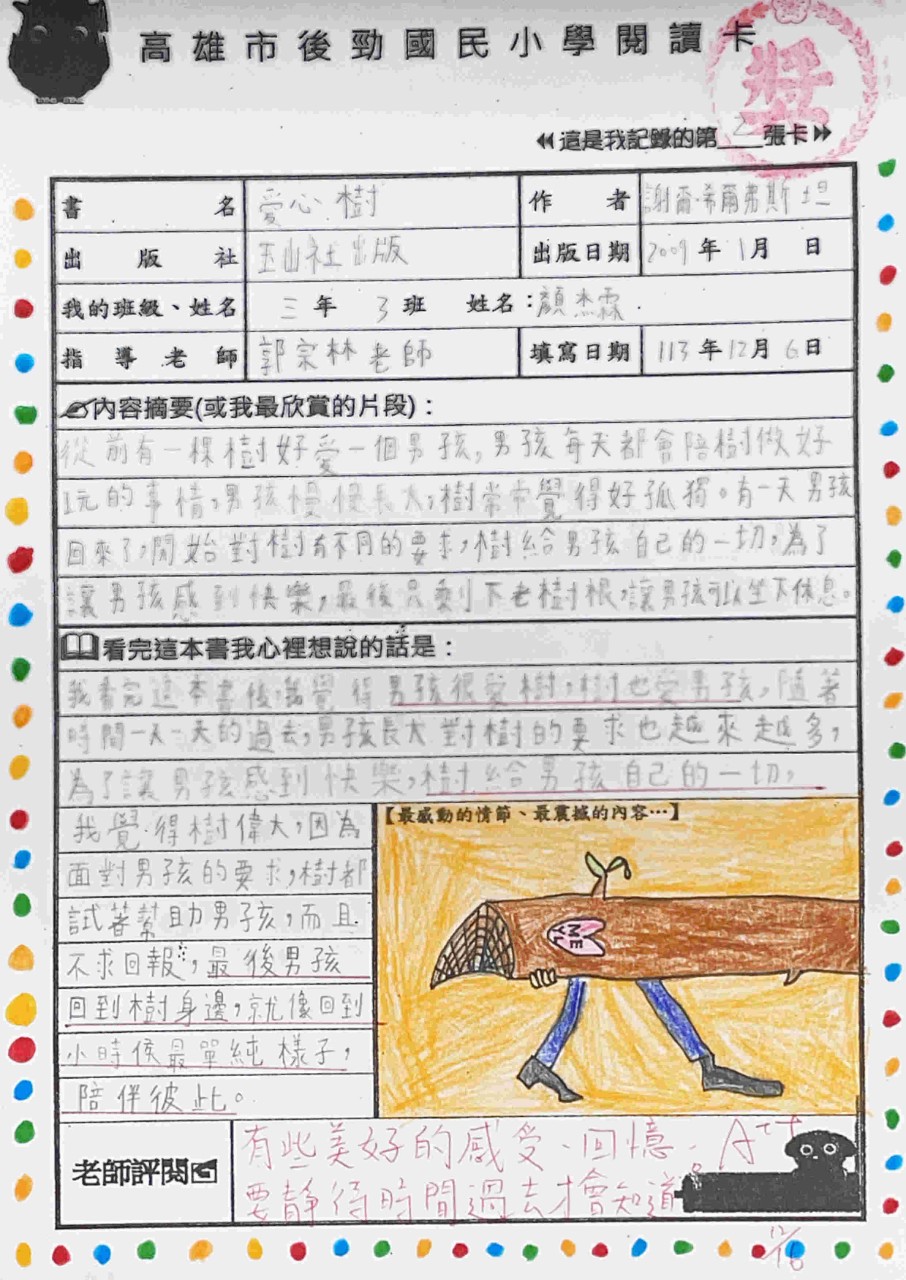 高雄市後勁國民小學閱讀卡
獎
這是我記錄的第 2 張卡
書名 愛心樹 作者 謝爾·希爾弗斯坦
出版社 玉山社出版 出版日期 2009年1月 日
我的班級、姓名 三年3班 姓名：顏杰霖
指導老師 郭宗林老師 填寫日期 113年12月6日
內容摘要(或我最欣賞的片段)：
從前有一棵樹好愛一個男孩,男孩每天都會陪樹做好
玩的事情,男孩慢慢長大,樹常常覺得好孤獨。有一天男孩
回來了,開始對樹有不同的要求,樹給男孩自己的一切,為了
讓男孩感到快樂,最後只剩下老樹根,讓男孩可以坐下休息。
看完這本書我心裡想說的話是：
我看完這本書後,我覺得男孩很愛樹,樹也愛男孩,隨著
時間一天一天的過去,男孩長大對樹的要求也越來越多,
為了讓男孩感到快樂,樹給男孩自己的一切,
我覺得樹偉大,因為
面對男孩的要求,樹都
試著幫助男孩,而且
不求回報,最後男孩
回到樹身邊,就像回到
小時候最單純樣子,
陪伴彼此。
【最感動的情節、最震撼的內容…】
ME
老師評閱
有些美好的感受、回憶, A++
要靜待時間過去才會知道。
12/16